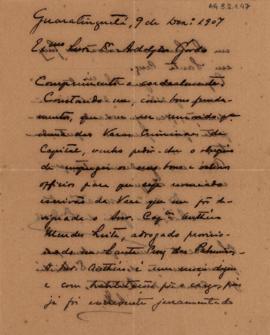 AG 3.2.1.47
Guaratinguetá, 9 de Dez.º 1907
Exmo Snr. Dr. Adolpho Gordo
Comprimento-o cordealmente.
Constando-me, com bons funda-
mentos, que vae ser
uma das Varas Criminaes da
Capital, venho pedir-lhe o obsequio
de empregar os seus bons e valiosos
officios para que seja nomeado
escrivão da Vara que
o Snr. Capm Arthur
Mendes Leite, advogado provisio-
nado em Santa Cruz das Palmeiras.
O Snr. Arthur é um moço digno
e com habilitações p.ª o cargo, pois
já foi escrevente juramentado